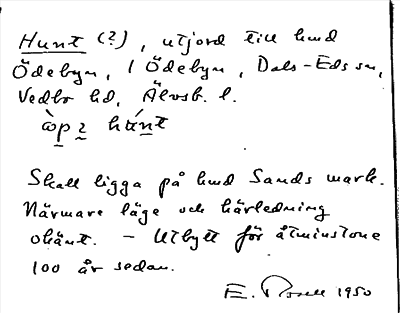 Hunt (?), utjord till hmd
Ödebyn, i Ödebyn, Dals-Eds sn,
Vedbo hd, Älvsb. l.
hunt
Skall ligga på hmd Sands mark.
Närmare läge och härledning
okänt. – Utbytt för åtminstone
100 år sedan.
E. 1950